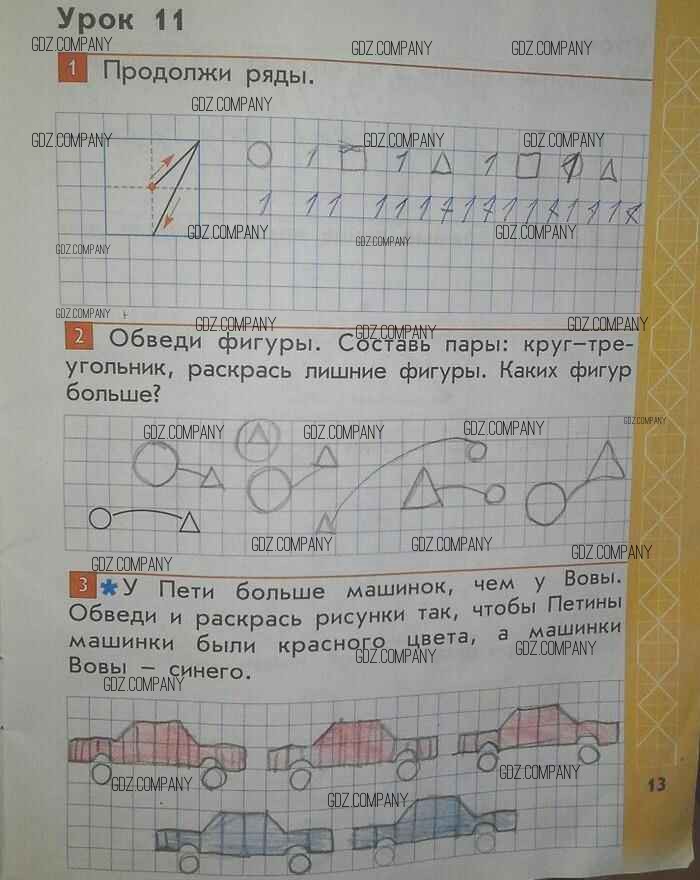 Урок 11
GDZ.COMPANY GDZ.COMPANY GDZ.COMPANY
1 Продолжи ряды.
GDZ.COMPANY
GDZ.COMPANY GDZ.COMPANY GDZ.COMPANY
1 1 1 1
1 1 1 1 1 1 1 1 1 1 1 1 1 1 1
GDZ.COMPANY GDZ.COMPANY GDZ.COMPANY
GDZ.COMPANY
GDZ.COMPANY
GDZ.COMPANY GDZ.COMPANY GDZ.COMPANY
2 Обведи фигуры. Составь пары: круг–тре-
угольник, раскрась лишние фигуры. Каких фигур
больше?
GDZ.COMPANY
GDZ.COMPANY GDZ.COMPANY GDZ.COMPANY
GDZ.COMPANY GDZ.COMPANY GDZ.COMPANY
GDZ.COMPANY
3 *У Пети больше машинок, чем у Вовы.
Обведи и раскрась рисунки так, чтобы Петины
машинки были красного цвета, а машинки
GDZ.COMPANY GDZ.COMPANY
Вовы – синего.
GDZ.COMPANY
GDZ.COMPANY GDZ.COMPANY GDZ.COMPANY
13